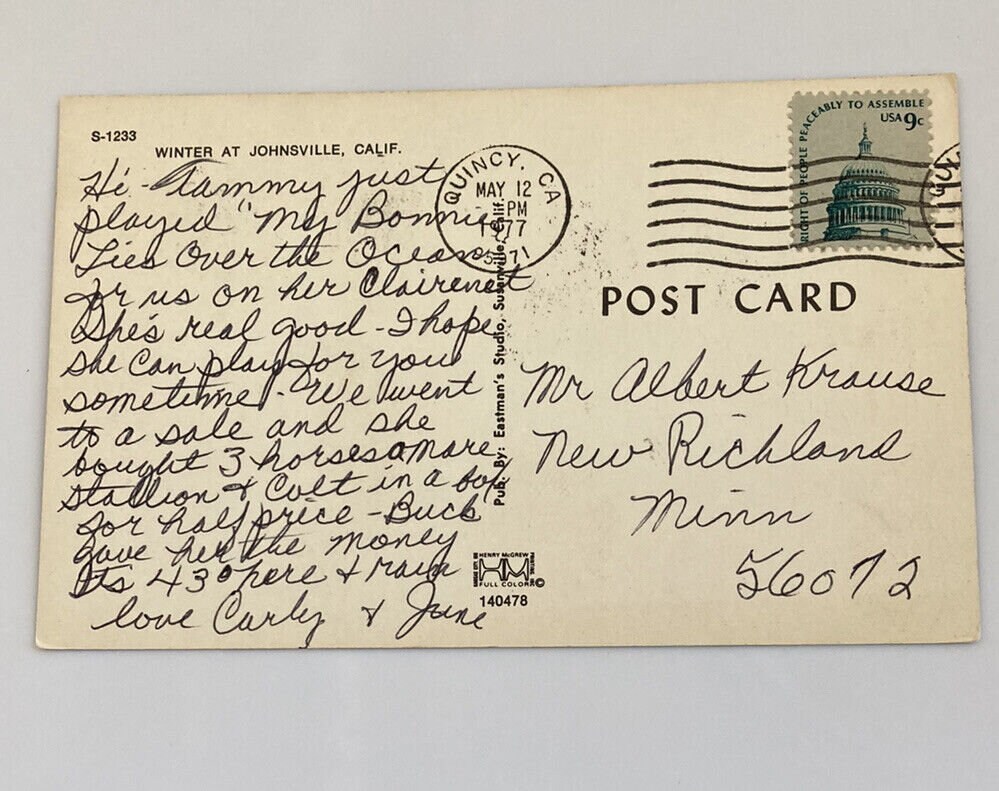 S-1233
WINTER AT JOHNSVILLE, CALIF.
Hi - Tammy just
played "My Bonnie
Lies Over the Ocean
for us on her Clairenet
She's real good - I hope
she can play for you
sometime. We went
to a sale and she
bought 3 horses a mare
stallion & Colt in a box
for half price - Buck
gave her the money
Its 43° here & rain
love Curly & June
QUINCY, CA
MAY 12
PM
1977
Pub. By: Eastman's Studio, Susanville, Calif.
HENRY McCREW
PRINTING
HM
FULL COLOR
©
140478
RIGHT OF PEOPLE PEACEABLY TO ASSEMBLE
USA 9c
POST CARD
Mr Albert Krause
New Richland
Minn
56072